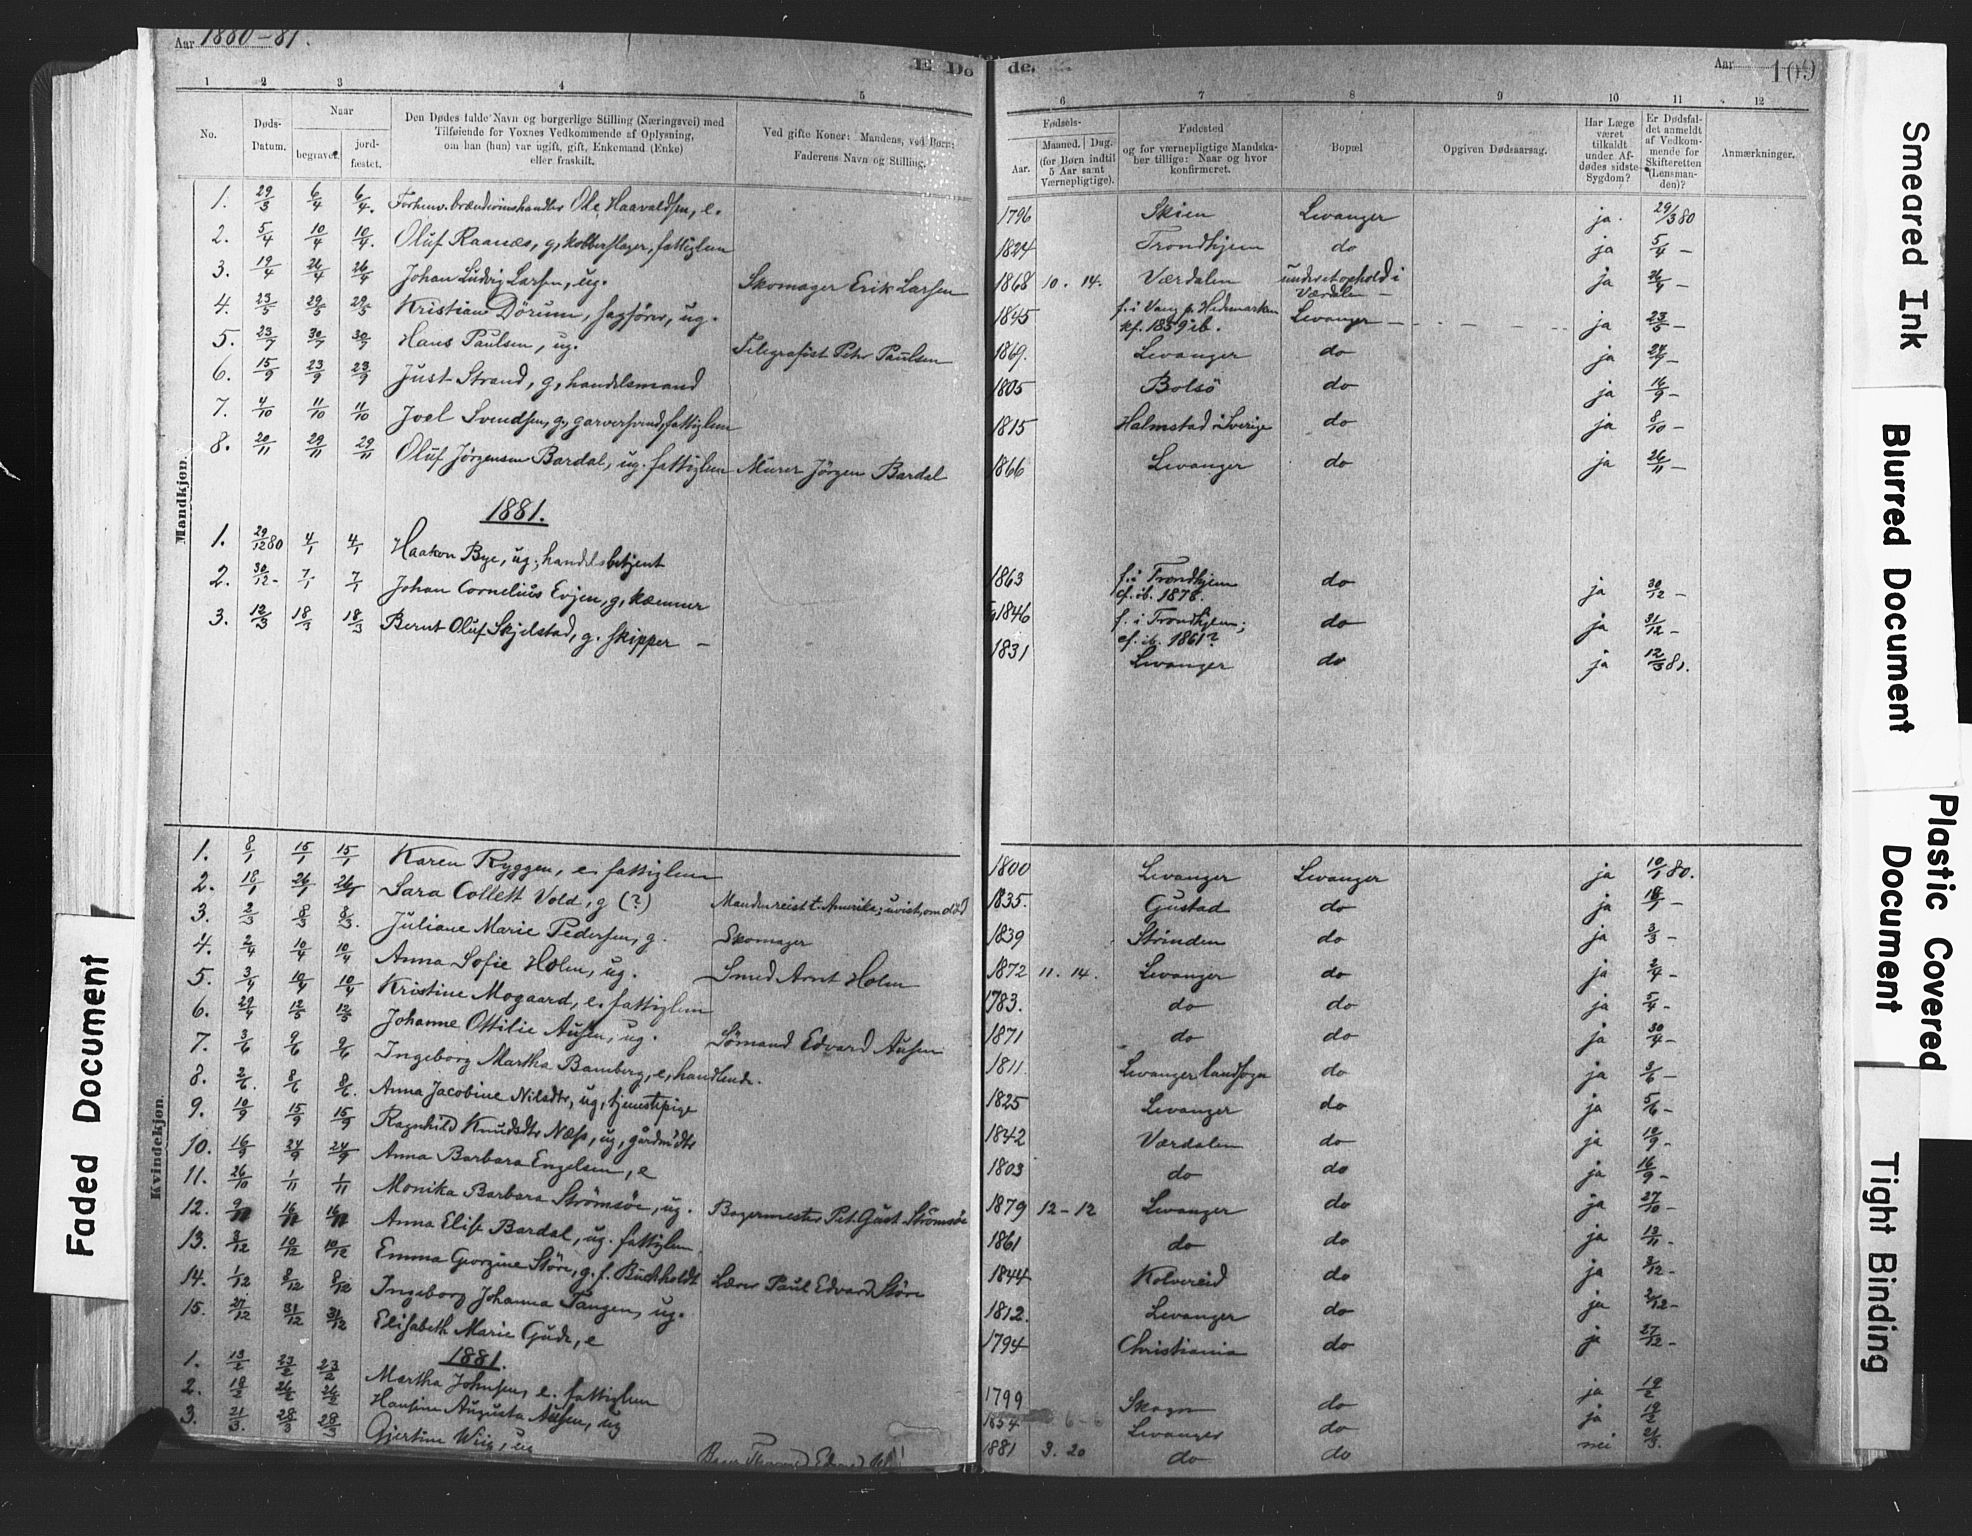 Aar 1880-81.
E. Dø
de.
Aar 109
1 2 3 4 5 6 7 8 9 10 11 12
No.
Døds-
Datum.
Naar
begravet.
jord-
fæstet.
Den Dødes fulde Navn og borgerlige Stilling (Næringsvei) med
Tilføiende for Voxnes Vedkommende af Oplysning,
om han (hun) var ugift, gift, Enkemand (Enke)
eller fraskilt.
Ved gifte Koner: Mandens, ved Børn:
Faderens Navn og Stilling.
Fødsels-
Aar.
Maaned. Dag.
(for Børn indtil
5 Aar samt
Værnepligtige).
Fødested
og for værnepligtige Mandska-
ber tillige: Naar og hvor
konfirmeret.
Bopæl
Opgiven Dødsaarsag.
Har Læge
været
tilkaldt
under Af-
dødes sidste
Sygdom?
Er Dødsfal-
det anmeldt
af Vedkom-
mende for
Skifteretten
(Lensman-
den)?
Anmærkninger.
Mandkjøn.
1. 29/3 6/4 6/4. Forhenv. brændevinshandler Ole Haavaldsen, e. 1796 Skien Levanger ja. 29/3 80
2. 5/4 10/4 10/4. Oluf Raanæs, g, kobberslager, fattiglem 1824 Trondhjem do ja 5/4 -
3. 19/4 26/4 26/4 Johan Ludvig Larsen, ug. Skomager Erik Larsen 1868 10. 14. Værdalen undertophold i Værdalen ja 26/4 -
4. 23/5 29/5 29/5 Kristian Dørum, sagfører, ug. 1845 f. i Vang p. Hedemarken kf. 1859 ib. Levanger ja 23/5 -
5. 23/7 30/7 30/7 Hans Paulsen, ug. Telegrafist Peter Paulsen 1869. Levanger do ja
6. 15/9 23/9 23/9 Just Strand, g, handelsmand 1805 Bolsø do ja 16/9 -
7. 4/10 11/10 11/10 Joel Svendsen, g, garversvend, fattiglem 1815 Halmstad i Sverige do ja 8/10 -
8. 20/11 29/11 29/11 Oluf Jørgensen Bardal, ug. fattiglem Murer Jørgen Bardal 1866 Levanger do ja 26/11 -
1881.
1. 29/12 80 4/1 4/1 Haakon Bye, ug, handelsbetjent 1863 f. i Trondhjem cf. ib. 1878. do ja 30/12 -
2. 30/12 - 7/1 7/1 Johan Cornelius Evjen, g, kæmner 1846 f. i Trondhjem; cf. ib. 1861? do ja 31/12 -
3. 12/3 18/3 18/3 Bernt Oluf Skjelstad, g. skipper - 1831 Levanger do ja 12/3 81.
Kvindekjøn.
1. 8/1 15/1 15/1 Karen Ryggen, e. fattiglem 1800 Levanger Levanger ja 10/1 80.
2. 18/1 26/1 26/1 Sara Collett Vold, g (?) Manden reist t. Amerika; uvist, om død 1835. Gustad do ja
3. 2/3 8/3 8/3. Juliane Marie Pedersen, g. Skomager 1839 Strinden do ja 3/3 -
4. 2/4 10/4 10/4 Anna Sofie Holm, ug. Smed Arnt Holm 1872 11. 14. Levanger do ja 2/4 -
5. 3/4 10/4 10/4 Kristine Mogaard, e. fattiglem 1783. do do ja 5/4 -
6. 29/4 12/5 12/5 Johanne Ottilie Ausen, ug. Sømand Edvard Ausen 1871 do do ja 30/4 -
7. 3/6 9/6 9/6 Ingeborg Martha Bamberg, e, handlende. 1811. Levanger landsogn do ja 3/6 -
8. 2/6. 8/6 8/6. Anna Jacobine Nilsdtr, ug, tjenestepige 1825 Levanger do ja 5/6 -
9. 10/9 15/9 15/9 Ragnhild Knudsdtr Næss, ug, gårdmdtr 1842 Værdalen do ja
10. 16/9 24/9 24/9 Anna Barbara Engelsen, e 1803 do do ja 16/9 -
11. 26/10 1/11 1/11 Monika Barbara Strømsøe, ug. Bagermester Pet. Gust. Strømsøe 1879 12-12 Levanger do ja 27/10 -
12. Anna Elise Bardal, ug. fattiglem 1861 do do ja
13. 3/12 10/12 10/12 Emma Georgine Støre, g. f. Buchholdt Lærer Paul Edvard Støre 1844 Kolvereid do ja 3/12 -
14. 1/12 8/12 8/12 Ingeborg Johanna Tangen, ug. 1812. Levanger do ja 2/12 -
15. 27/12 31/12 31/12 Elisabeth Marie Gude, e 1794 Christiania do ja 27/12 -
1881.
1. 13/2 23/2 23/2 Martha Johnsen, e. fattiglem 1799 Skogn do ja
2. 18/2 26/2 26/2 Hansine Augusta Ausen, ug 1854 6-6 Levanger do ja
3. 21/3. 28/3 28/3 Gjertine Wiig, ug 1881 3. 20 do do nei
Smeared Ink
Blurred Document
Plastic Covered
Document
Tight Binding
Faded Document